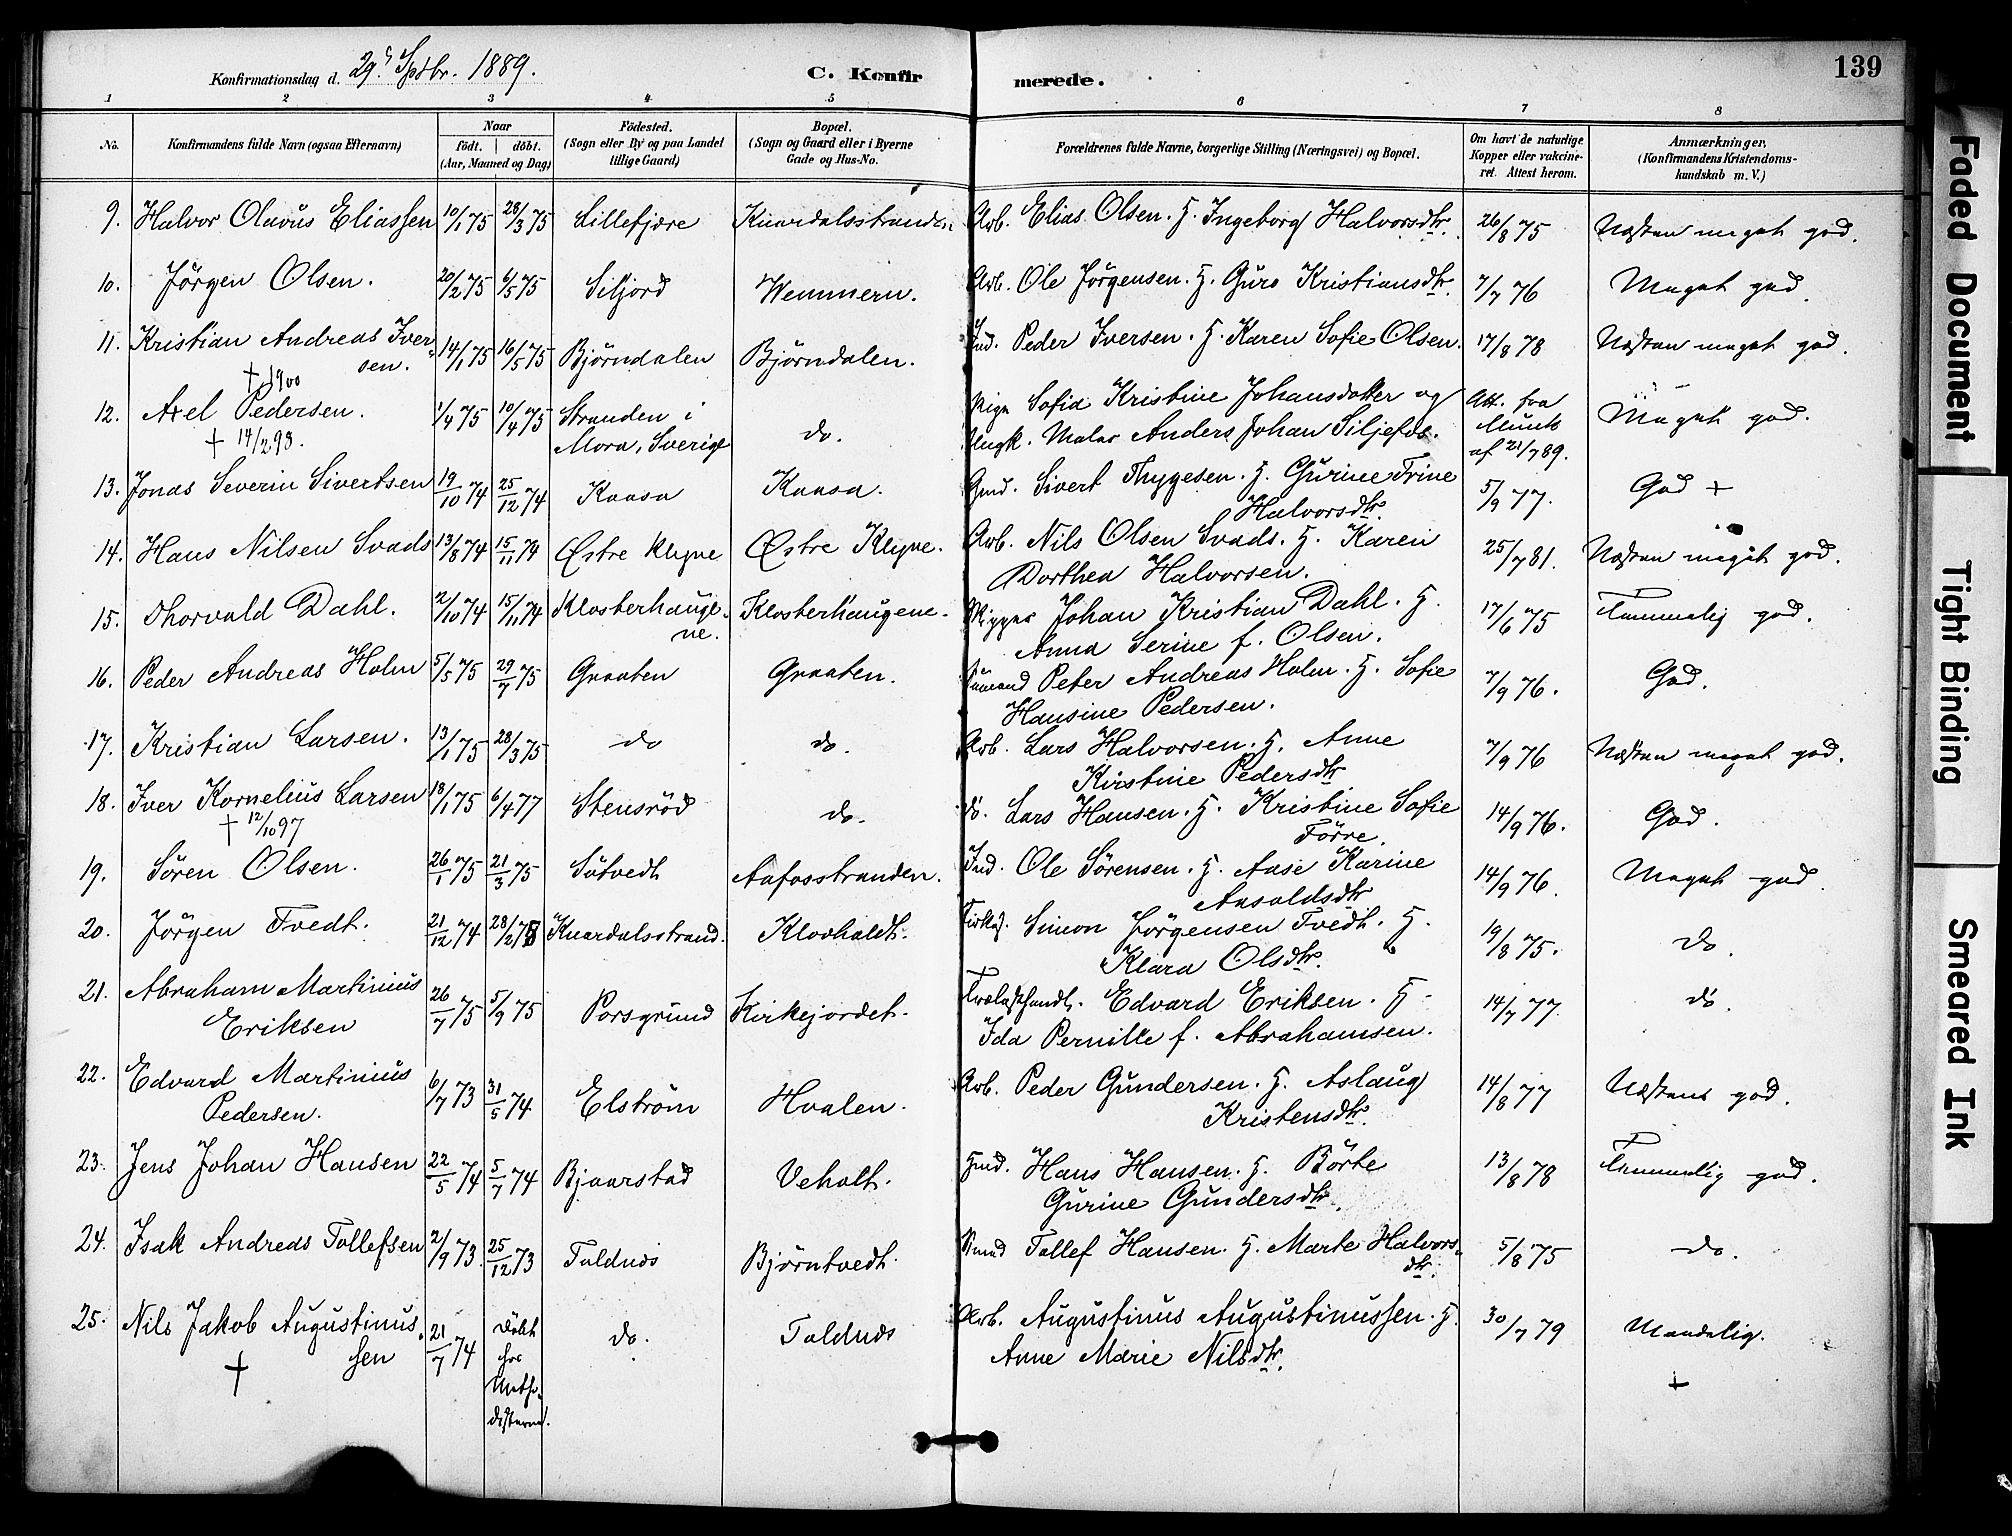 139
Konfirmationsdag d. 29de Sptbr. 1889. C. Konfirmerede.
1 2 3 4 5 6 7 8
No. Konfirmandens fulde Navn (ogsaa Efternavn) Naar födt. döbt. (Aar, Maaned og Dag) Födested. (Sogn eller By og paa Landet tillige Gaard) Bopæl. (Sogn og Gaard eller i Byerne Gade og Hus-No. Forældrenes fulde Navne, borgerlige Stilling (Næringsvei) og Bopæl. Om havt de naturlige Kopper eller vakcineret. Attest herom. Anmærkninger. (Konfirmandens Kristendomskundskab m. V.)
9. Halvor Olavus Eliassen 10/1 75 28/3 75 Lillefjære Knardalsstranden Arb. Elias Olsen. H. Ingeborg Halvorsdtr. 26/8 75 Næsten meget god.
10. Jörgen Olsen. 20/2 75 6/5 75 Siljord Wemmern. Arb. Ole Jörgensen. H. Guro Kristiansdtr. 7/7 76 Meget god.
11. Kristian Andreas Iver- 14/1 75 16/5 75 Björndalen Björndalen. Ind. Peder Iversen. H. Karen Sofie Olsen. 17/8 78 Næsten meget god.
sen.
+ 1900
12. Axel Pedersen. 1/4 75 10/4 75 Stranden i Mora, Sverige do. Pige Sofia Kristine Johansdotter og Ungk. Maler Anders Johan Siljefos. Att. fra Munk af 21/7 89. Meget god.
+ 14/2 93.
13. Jonas Severin Sivertsen 19/10 74 25/12 74 Kaasa Kaasa. Gmd. Sivert Thygesen. H. Gurine Trine Halvorsdtr. 5/9 77. God +
14. Hans Nilsen Svads 13/8 74 15/11 74 Østre Klyve Østre Klyve. Arb. Nils Olsen Svads. H. Karen Dorthea Halvorsen. 25/7 81. Næsten meget god.
15. Thorvald Dahl. 2/10 74 15/11 74 Klosterhaugene. Klosterhaugene. Skipper Johan Kristian Dahl. H. Anna Serine f. Olsen. 17/6 75 Temmelig god.
16. Peder Andreas Holm 5/5 75 29/7 75 Graaten Graaten. Sømand Peter Andreas Holm. H. Sofie Hansine Pedersen. 7/9 76. God.
17. Kristian Larsen. 13/1 75 28/3 75 do do. Arb. Lars Halvorsen. H. Anne Kirstine Pedersdtr. 7/9 76 Næsten meget god.
18. Iver Kornelius Larsen 18/1 75 6/4 77 Stensröd do. do. Lars Hansen. H. Kristine Sofie Törre. 14/9 76. God.
+ 12/10 97
19. Sören Olsen. 26/1 75 21/3 75 Sötvedt Aafosstranden. Ind. Ole Sörensen. H. Aase Karine Aasoldsdtr 14/9 76. Meget god.
20. Jörgen Tvedt. 21/12 74 28/2 75 Knardalsstrand. Klovholdt. Simon Jörgensen Tvedt. H. Klara Olsdtr. 19/8 75. do.
21. Abraham Martinius Eriksen 26/7 75 5/9 75 Porsgrund Kirkejordet. Trælasthandl. Edvard Eriksen. H. Ida Pernille f. Abrahamsen. 14/7 77. do.
22. Edvard Martinius Pedersen. 6/7 73 31/5 74 Elström Hvalen. Arb. Peder Gundersen. H. Aslaug Kristensdtr. 14/8 77 Næsten god.
23. Jens Johan Hansen 22/5 74 5/7 74 Bjaarstad Veholt. Hmd. Hans Hansen. H. Börte Gurine Gundersdtr. 13/8 78 Temmelig god.
24. Isak Andreas Tollefsen 2/9 73 25/12 73 Foldnes Björntvedt. Tollef Hansen. H. Marte Halvorsdtr. 5/8 75 do.
25. Nils Jakob Augustinussen 21/7 74 Döbt hos Methodisterne. do. Foldnes Arb. Augustinus Augustinussen. H. Anne Marie Nilsdtr. 30/7 79 Maadelig.
+ +
Faded Document
Tight Binding
Smeared Ink